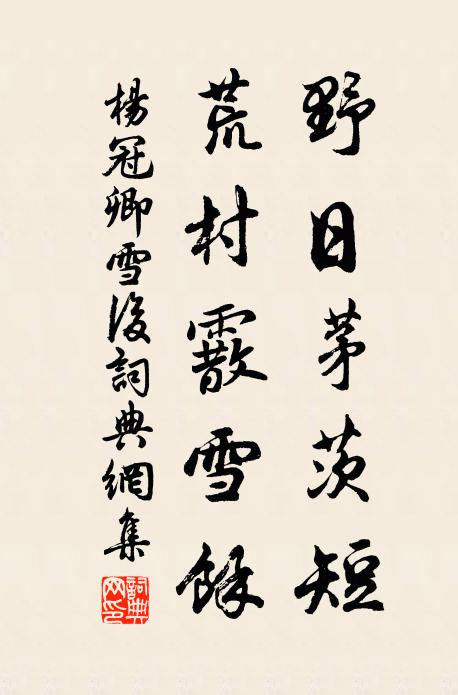 野日茅茨短
荒村霰雪餘
楊冠卿雪後詞典網集
詞典网印